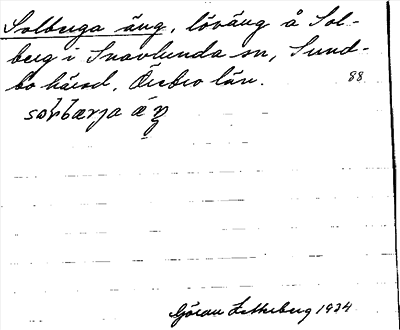 Solberga äng, löväng å Sol-
berg i Snavlunda sn, Sund-
bo härad, Örebro län. 88
Göran Zetterberg 1934